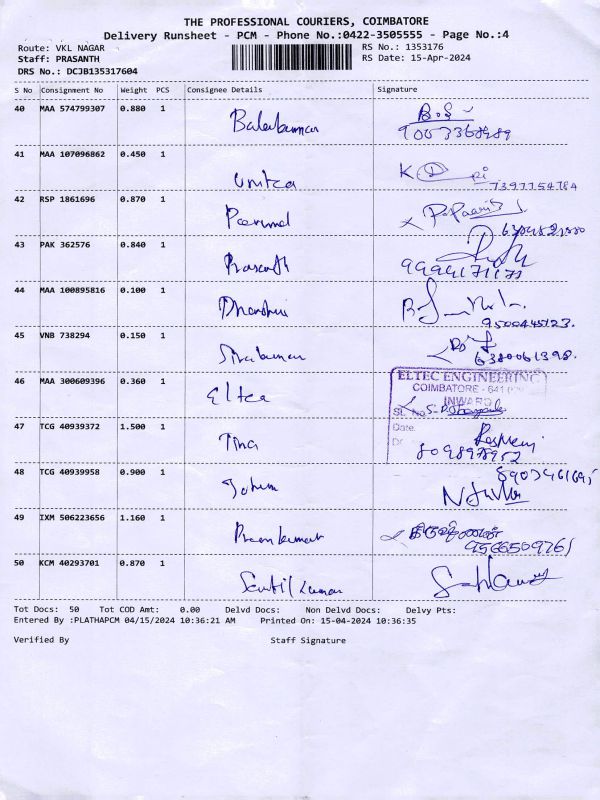 THE PROFESSIONAL COURIERS, COIMBATORE
Delivery Runsheet - PCM - Phone No.:0422-3505555 - Page No.:4
Route: VKL NAGAR RS No.: 1353176
Staff: PRASANTH RS Date: 15-Apr-2024
DRS No.: DCJB135317604
S No Consignment No Weight PCS Consignee Details Signature
40 MAA 574799307 0.880 1 Balakumar
41 MAA 107096862 0.450 1
7397754784
42 RSP 1861696 0.870 1
43 PAK 362576 0.840 1 Prasanth
44 MAA 100895816 0.100 1 Dharshini
9500445123.
45 VNB 738294 0.150 1 Sivakumar
6380061398.
46 MAA 300609396 0.360 1 Eltec
ELTEC ENGINEERING
COIMBATORE - 641
INWARD
SL. No.
Date:
47 TCG 40939372 1.500 1 Tina
8098978952
48 TCG 40939958 0.900 1
49 IXM 506223656 1.160 1 Premkumar
9566509761
50 KCM 40293701 0.870 1 Sentil Kumar
Tot Docs: 50 Tot COD Amt: 0.00 Delvd Docs: Non Delvd Docs: Delvy Pts:
Entered By :PLATHAPCM 04/15/2024 10:36:21 AM Printed On: 15-04-2024 10:36:35
Verified By Staff Signature